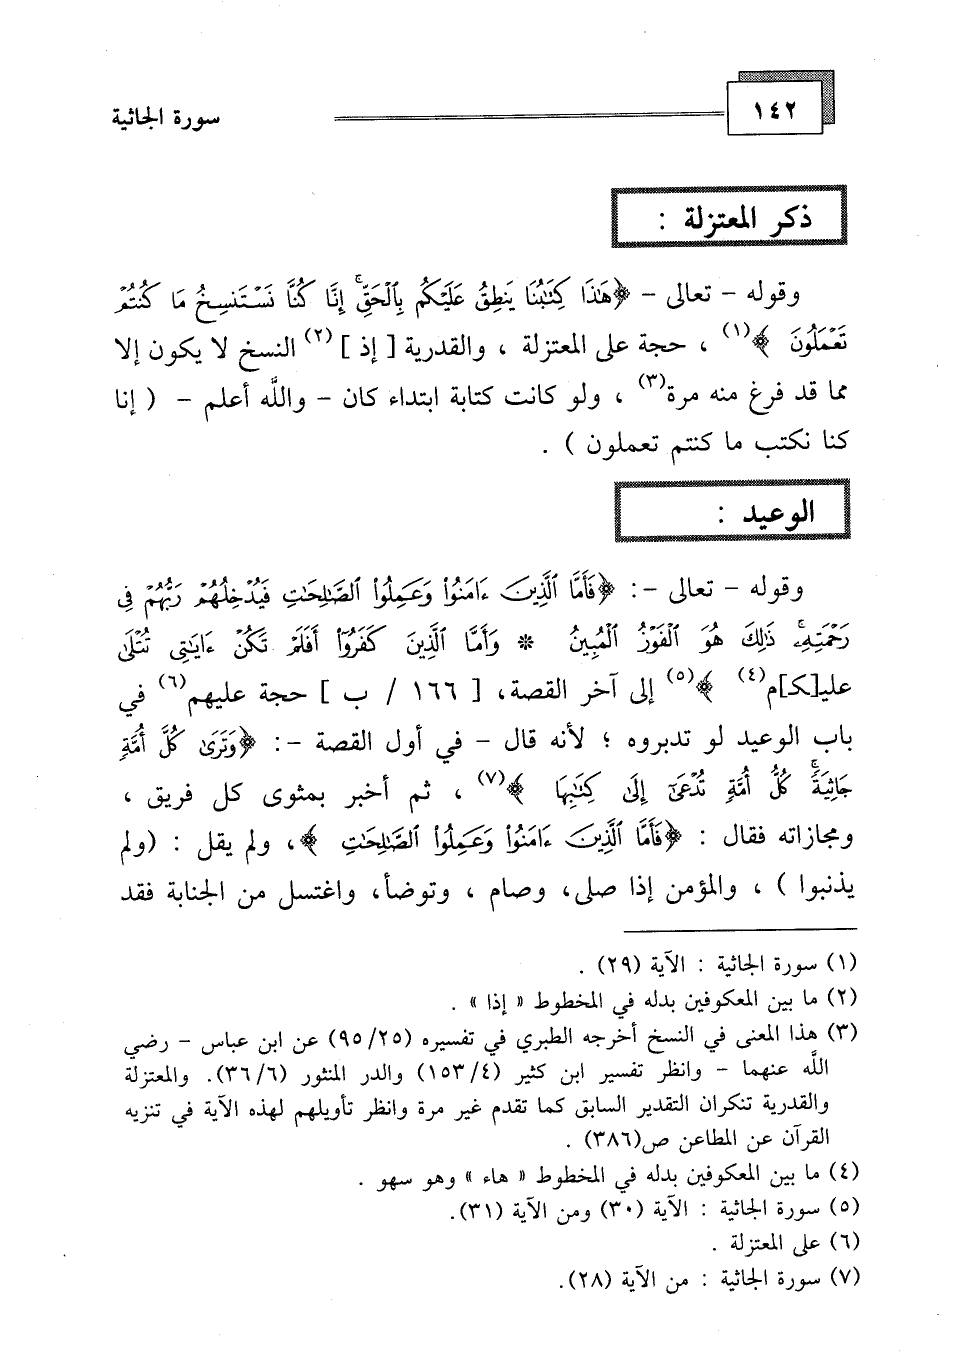 ١٤٢ سورة الجاثية
ذكر المعتزلة :
وقوله - تعالى - ﴿هَٰذَا كِتَٰبُنَا يَنطِقُ عَلَيْكُم بِٱلْحَقِّ ۚ إِنَّا كُنَّا نَسْتَنسِخُ مَا كُنتُمْ
تَعْمَلُونَ ﴾(١) ، حجة على المعتزلة ، والقدرية [ إذ ](٢) النسخ لا يكون إلا
مما قد فرغ منه مرة(٣) ، ولو كانت كتابة ابتداء كان - واللَّه أعلم - ( إنا
كنا نكتب ما كنتم تعملون ) .
الوعيد :
وقوله - تعالى -: ﴿فَأَمَّا ٱلَّذِينَ ءَامَنُوا۟ وَعَمِلُوا۟ ٱلصَّٰلِحَٰتِ فَيُدْخِلُهُمْ رَبُّهُمْ فِى
رَحْمَتِهِۦ ۚ ذَٰلِكَ هُوَ ٱلْفَوْزُ ٱلْمُبِينُ * وَأَمَّا ٱلَّذِينَ كَفَرُوٓا۟ أَفَلَمْ تَكُنْ ءَايَٰتِى تُتْلَىٰ
علي[كـ]م(٤) ﴾(٥) إلى آخر القصة، [ ١٦٦ / ب ] حجة عليهم(٦) في
باب الوعيد لو تدبروه ؛ لأنه قال - في أول القصة -: ﴿وَتَرَىٰ كُلَّ أُمَّةٍ
جَاثِيَةً ۚ كُلُّ أُمَّةٍ تُدْعَىٰٓ إِلَىٰ كِتَٰبِهَا ﴾(٧) ، ثم أخبر بمثوى كل فريق ،
ومجازاته فقال : ﴿فَأَمَّا ٱلَّذِينَ ءَامَنُوا۟ وَعَمِلُوا۟ ٱلصَّٰلِحَٰتِ ﴾، ولم يقل : (ولم
يذنبوا ) ، والمؤمن إذا صلى، وصام ، وتوضأ، واغتسل من الجنابة فقد
(١) سورة الجاثية : الآية (٢٩) .
(٢) ما بين المعكوفين بدله في المخطوط « إذا » .
(٣) هذا المعنى في النسخ أخرجه الطبري في تفسيره (٩٥/٢٥) عن ابن عباس - رضي
اللَّه عنهما - وانظر تفسير ابن كثير (١٥٣/٤) والدر المنثور (٣٦/٦). والمعتزلة
والقدرية تنكران التقدير السابق كما تقدم غير مرة وانظر تأويلهم لهذه الآية في تنزيه
القرآن عن المطاعن ص(٣٨٦) .
(٤) ما بين المعكوفين بدله في المخطوط « هاء » وهو سهو .
(٥) سورة الجاثية : الآية (٣٠) ومن الآية (٣١).
(٦) على المعتزلة .
(٧) سورة الجاثية : من الآية (٢٨).